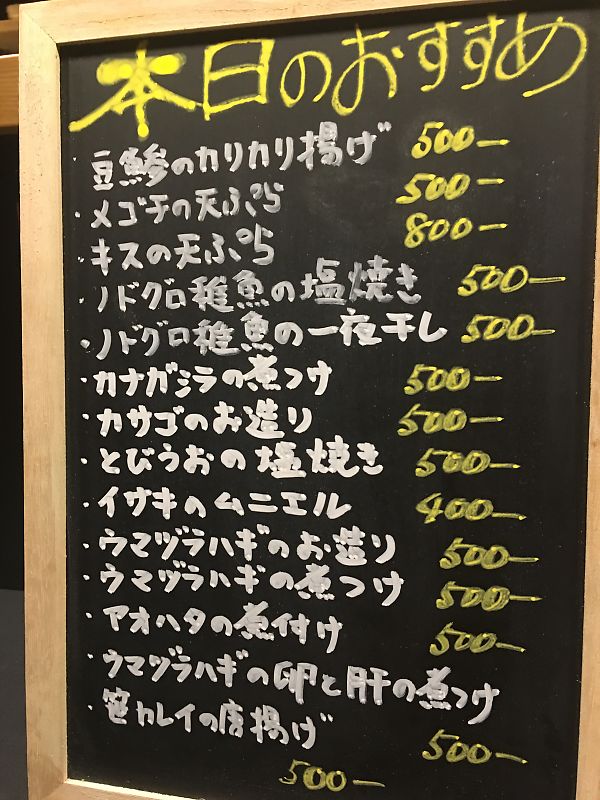 本日のおすすめ
豆鯵のカリカリ揚げ 500ー
・メゴチの天ぷら 500ー
・キスの天ぷら 800ー
・ノドグロ稚魚の塩焼き 500ー
・ノドグロ稚魚の一夜干し 500ー
・カナガシラの煮つけ 500ー
・カサゴのお造り 500ー
・とびうおの塩焼き 500ー
・イサキのムニエル 400ー
・ウマヅラハギのお造り 500ー
・ウマヅラハギの煮つけ 500ー
・アオハタの煮付け 500ー
・ウマヅラハギの卵と肝の煮つけ
500ー
・笹カレイの唐揚げ
500ー